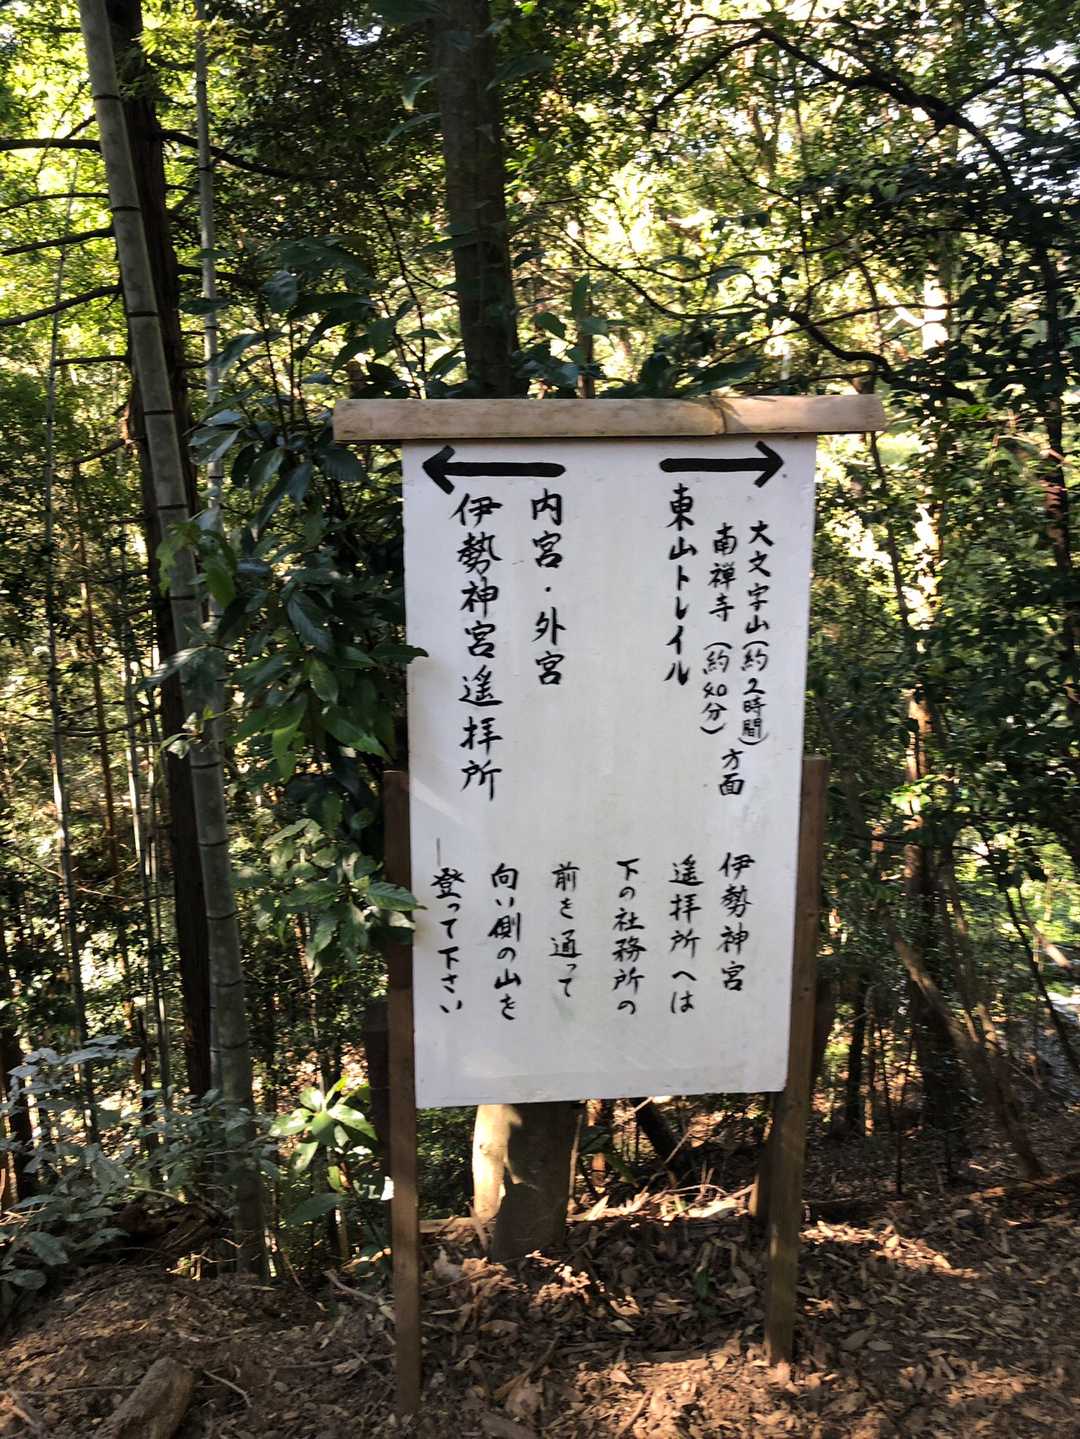 →
大文字山(約2時間)
南禅寺(約40分)方面
東山トレイル
←
内宮・外宮
伊勢神宮遥拝所
伊勢神宮
遥拝所へは
下の社務所の
前を通って
向い側の山を
登って下さい